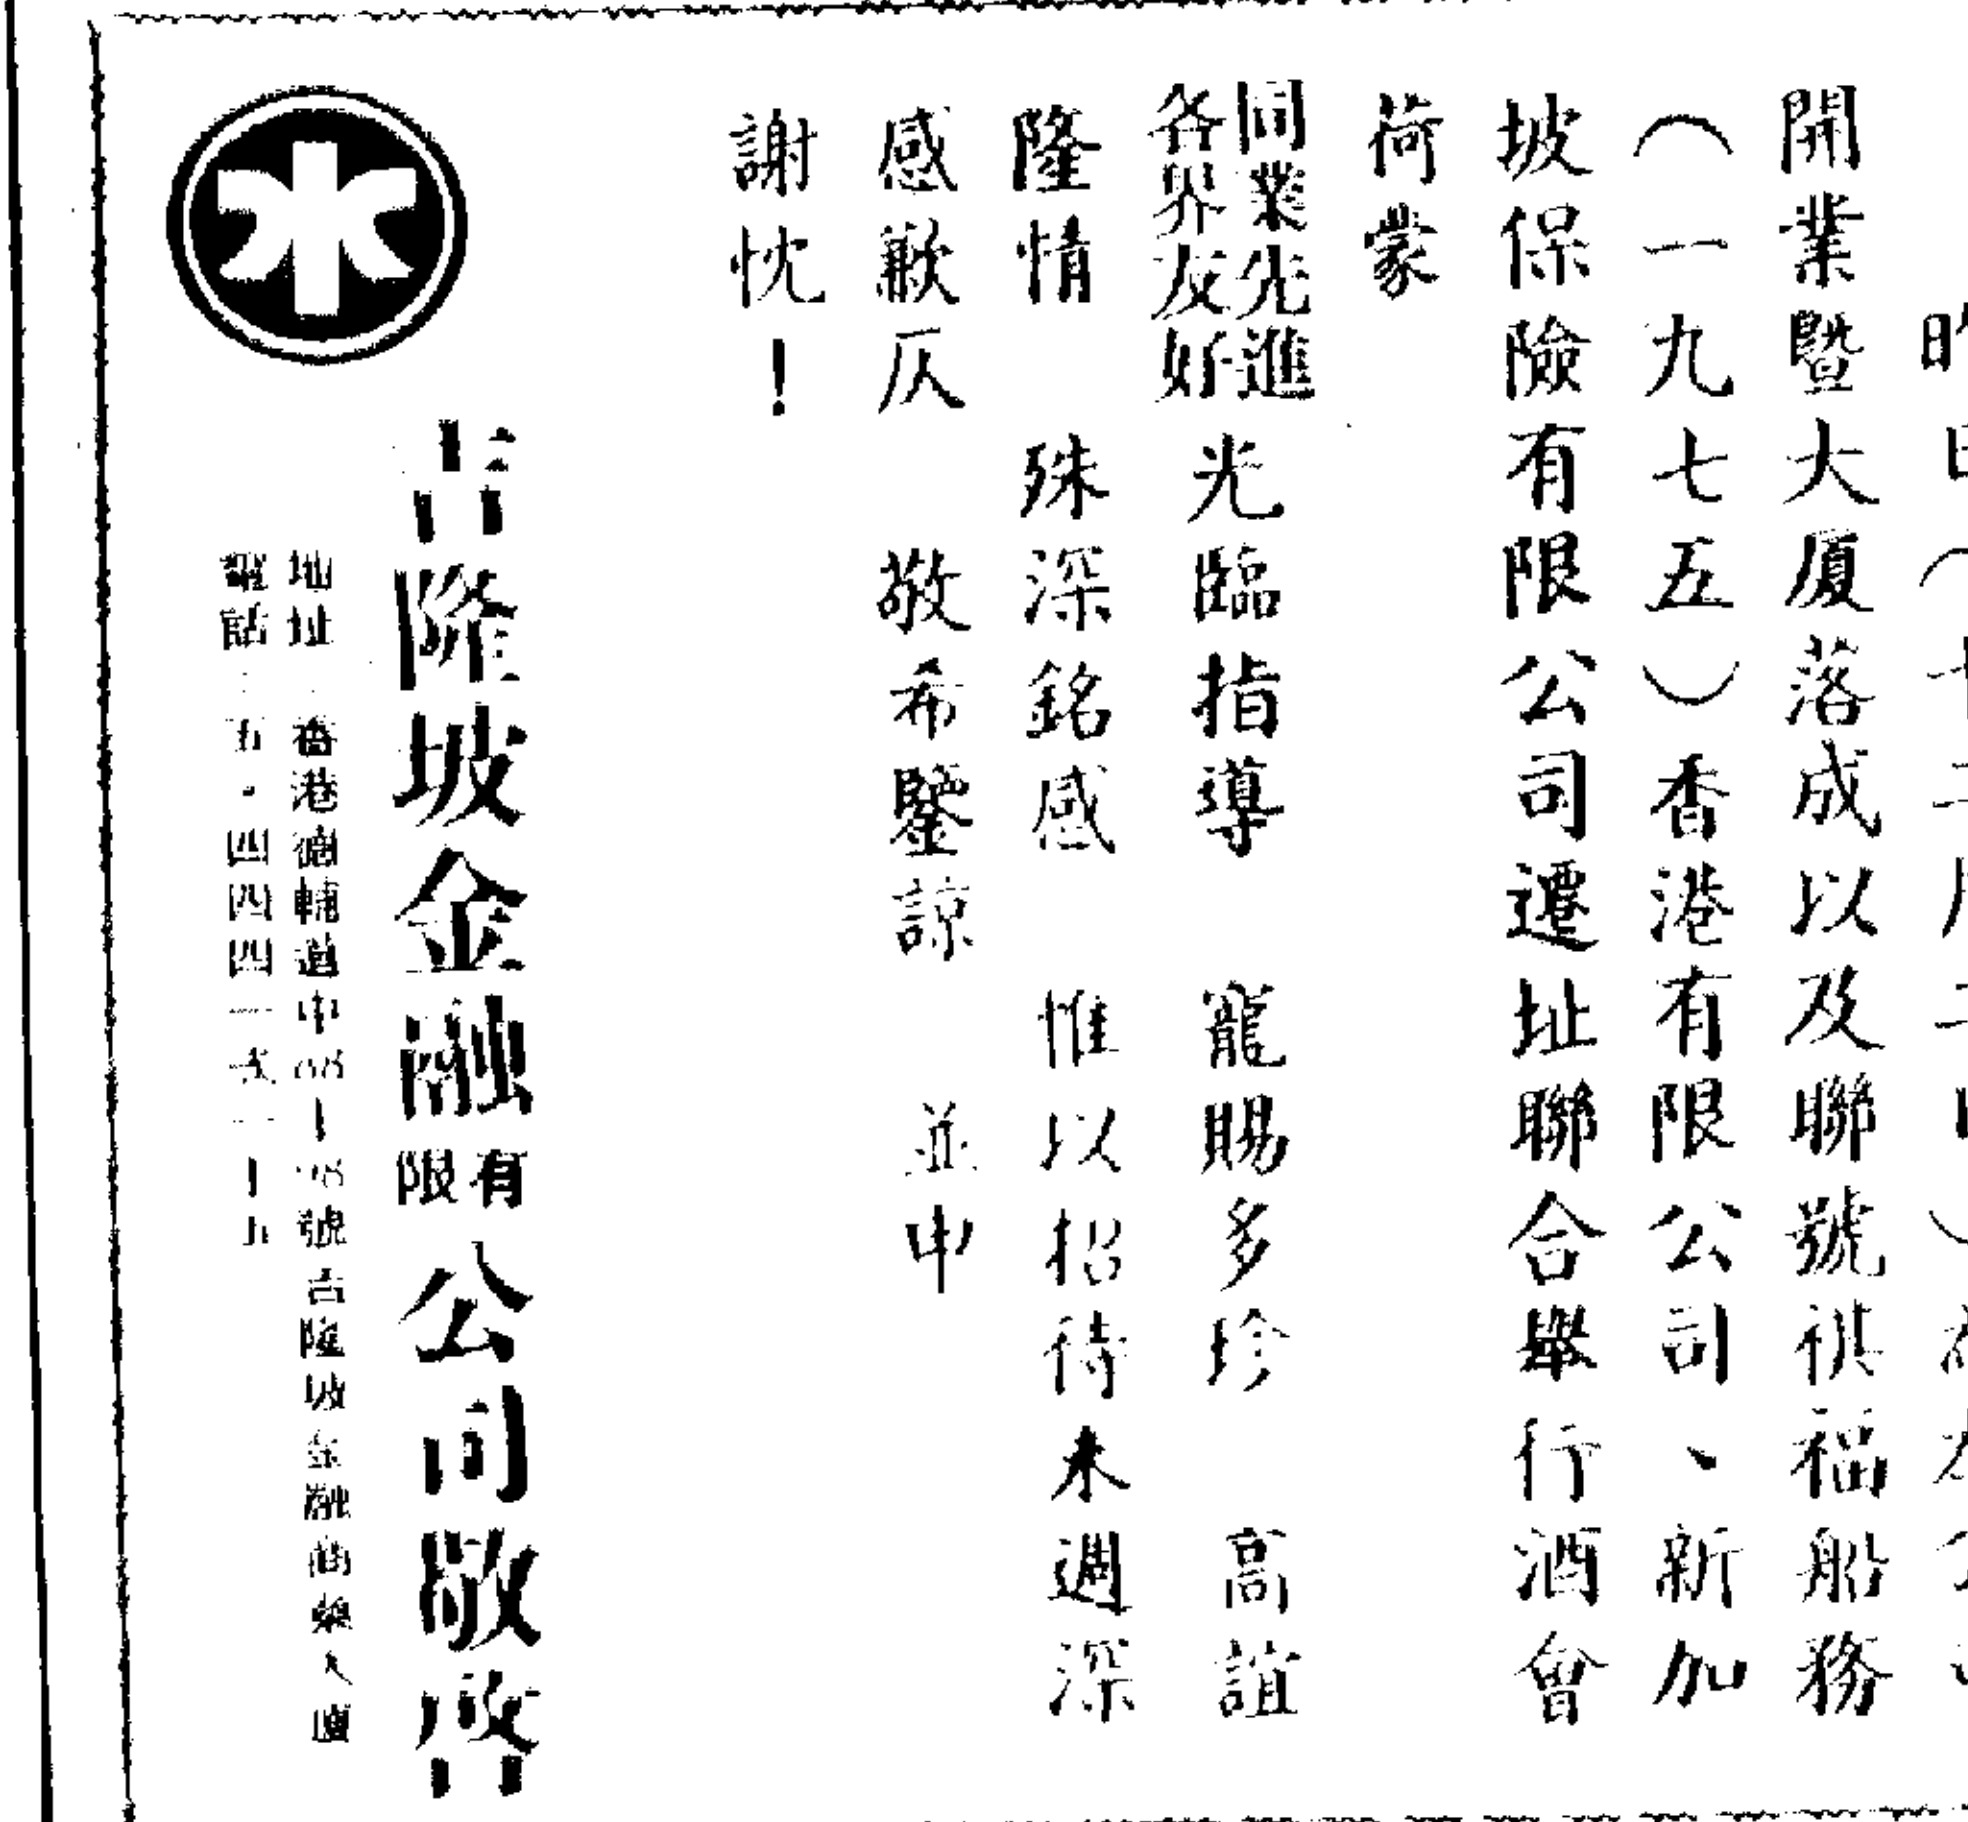 開業暨大厦落成以及聯號祺福船務
（一九七五）香港有限公司、新加
坡保險有限公司遷址聯合舉行酒會
荷蒙
同業先進
各界友好
光臨指導　寵賜多珍　高誼
隆情　殊深銘感　惟以招待未週深
感歉仄　敬希鑒諒　並申
謝忱！
吉隆坡金融有限公司敬啓
地址：香港德輔道中　號吉隆坡金融商業大廈
電話：五・四四四一　一